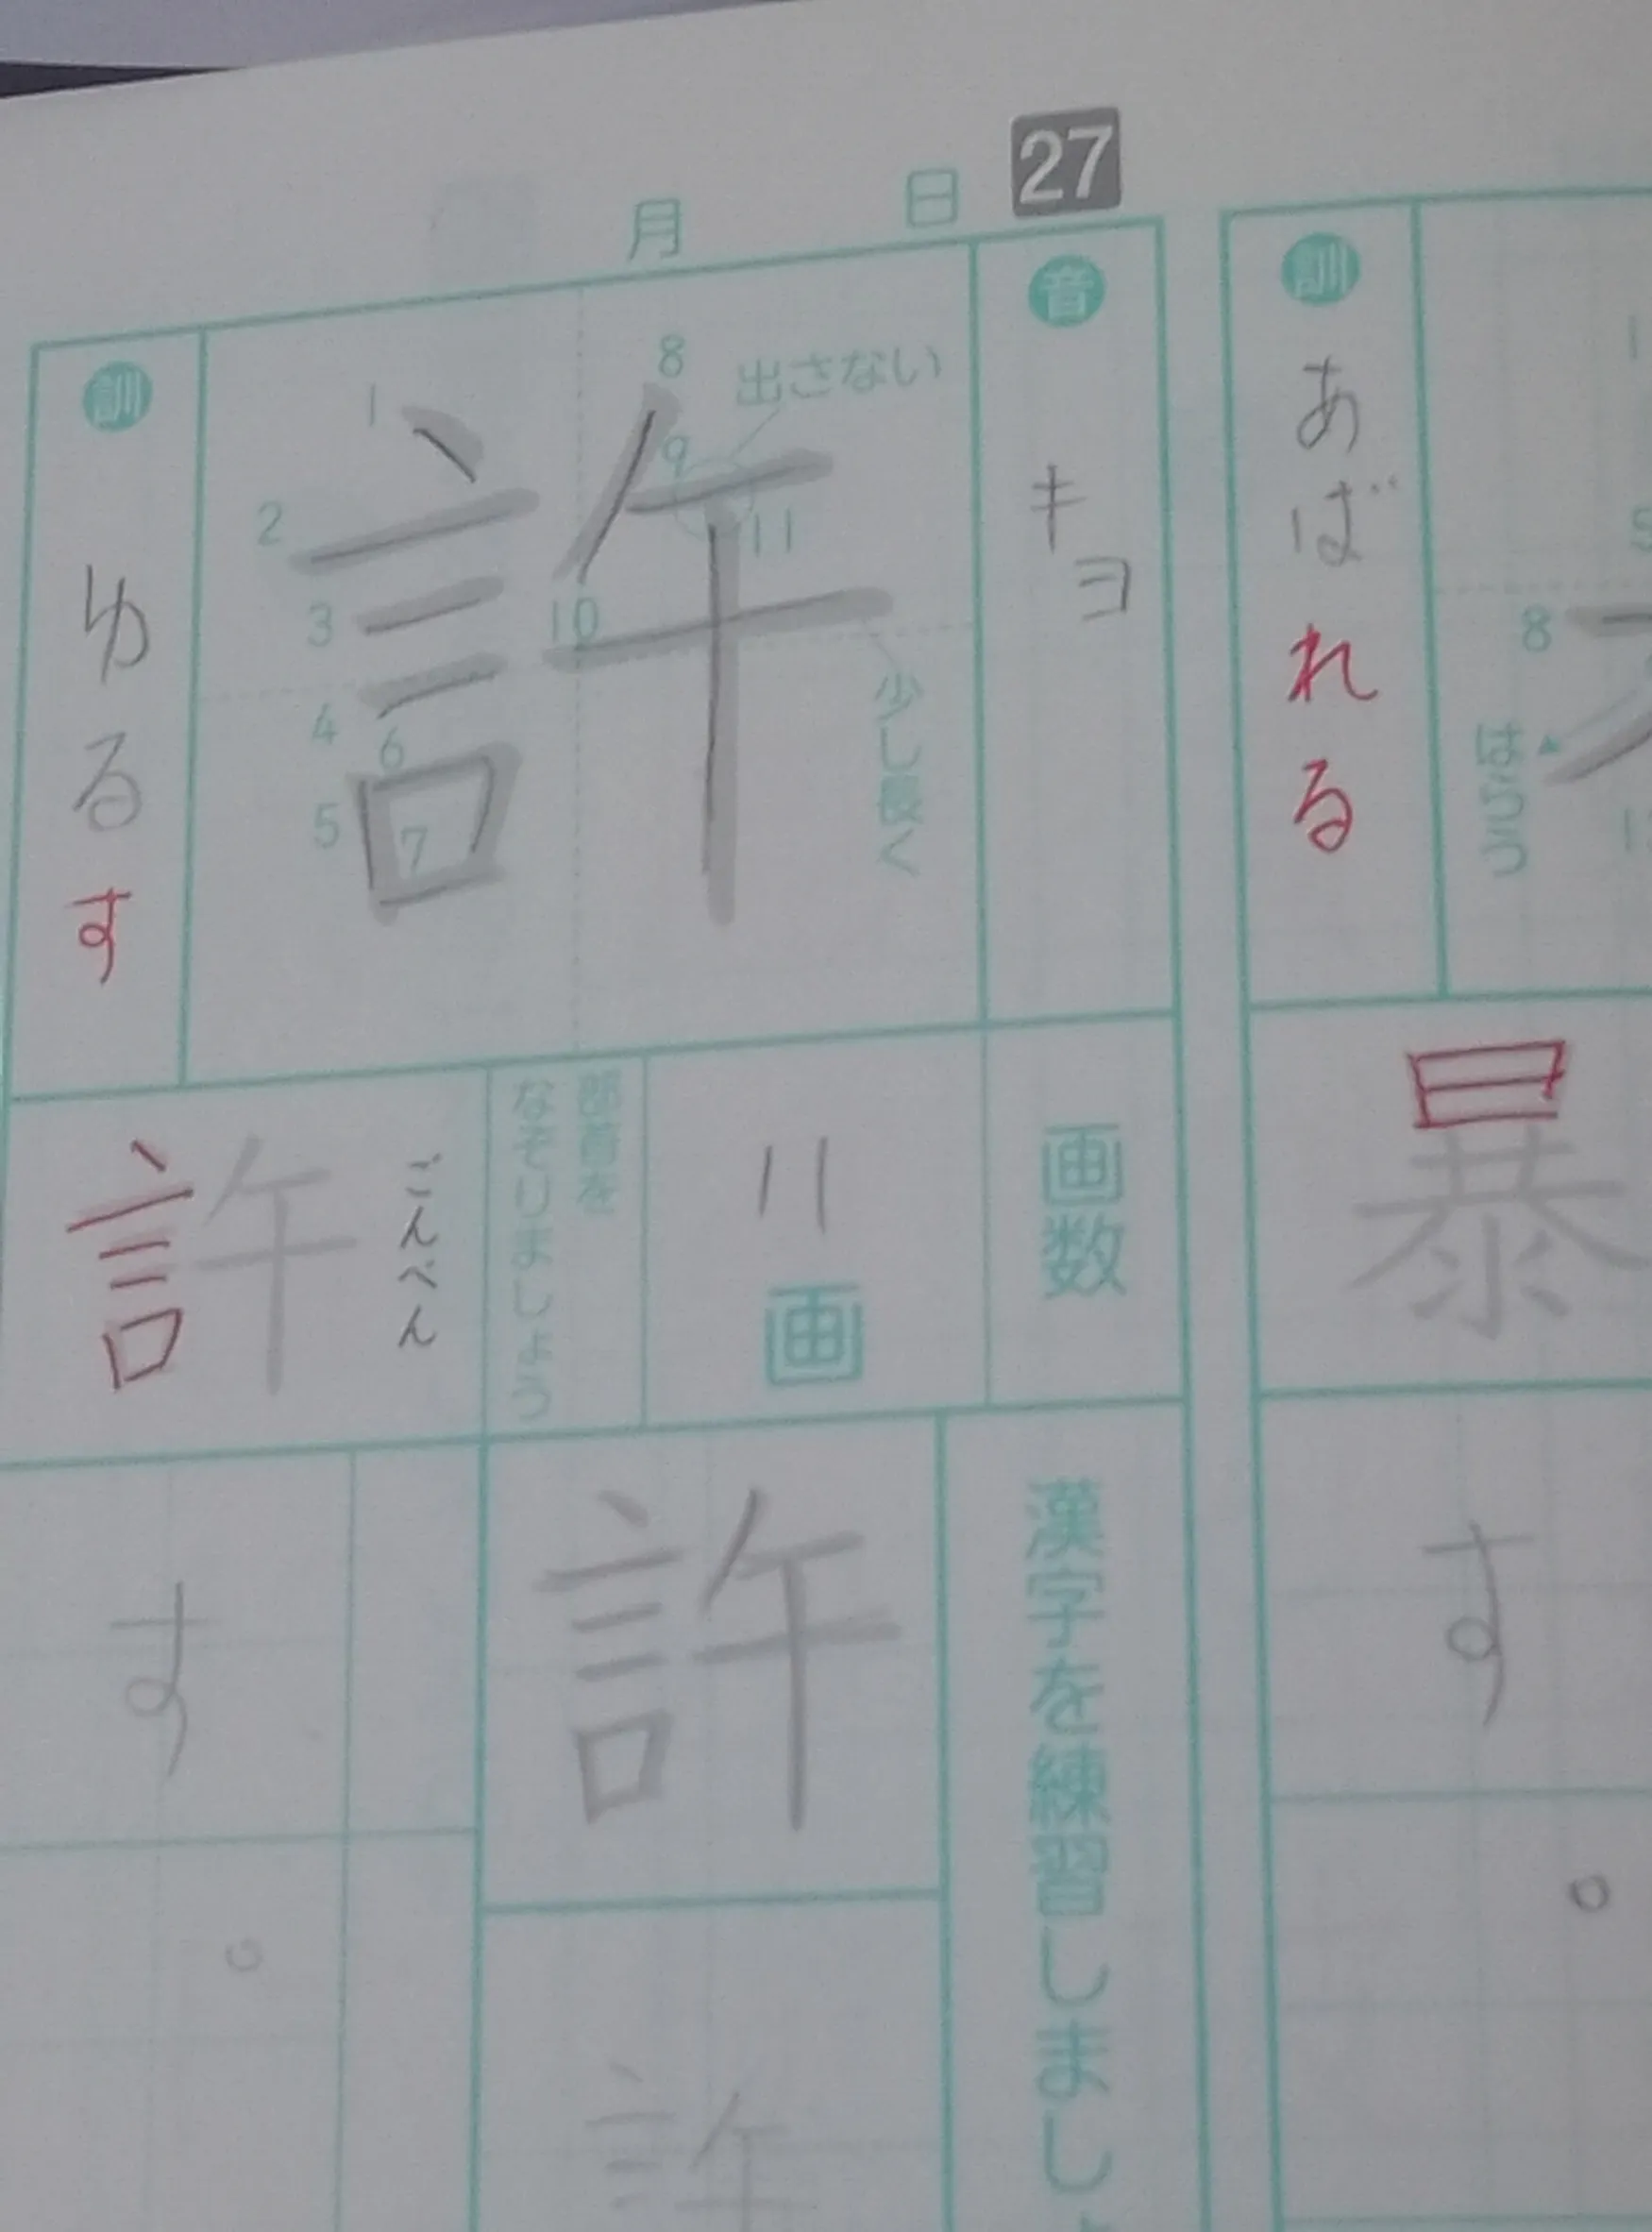 27
月 日
音
キョ
訓
ゆるす
許
1
2
3
4
5
6
7
8
9
10
11
出さない
少し長く
画数
11画
部首を
なぞりましょう
ごんべん
許
漢字を練習しまし
許
許
す
。
訓
あばれる
8
はらう
暴
す
。